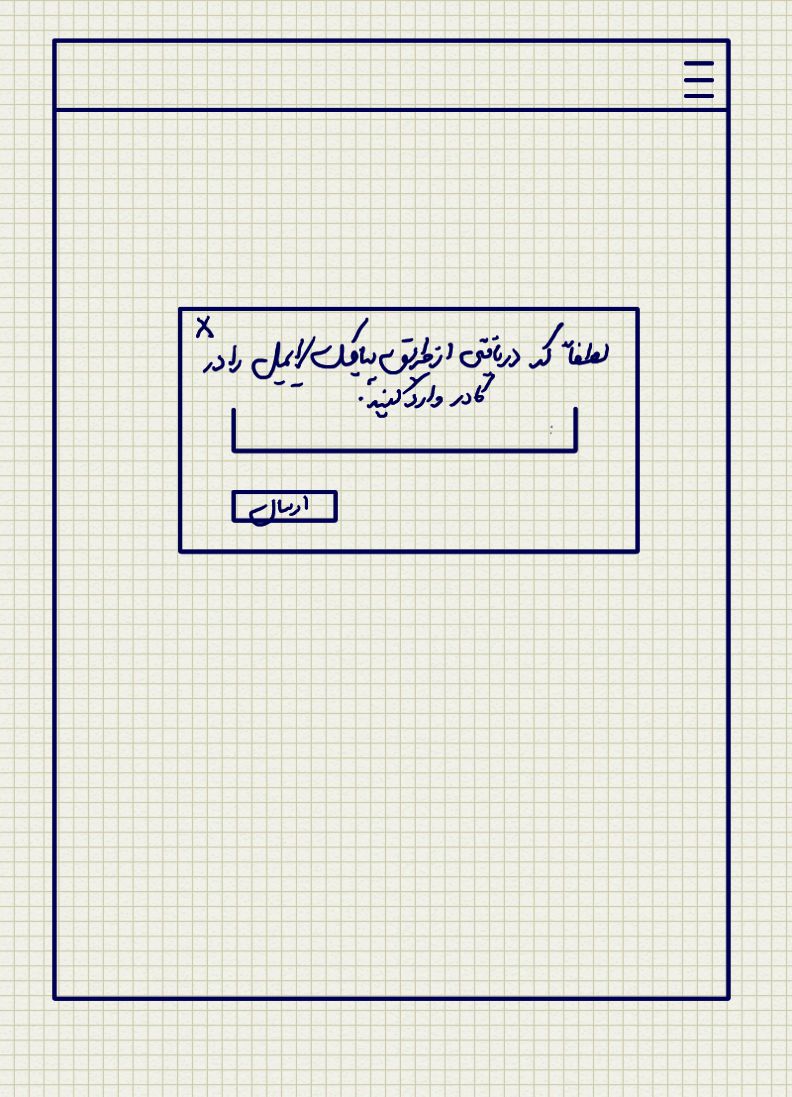 X
لطفاً کد دریافتی از طریق پیامک/ایمیل را در
کادر وارد کنید.
ارسال